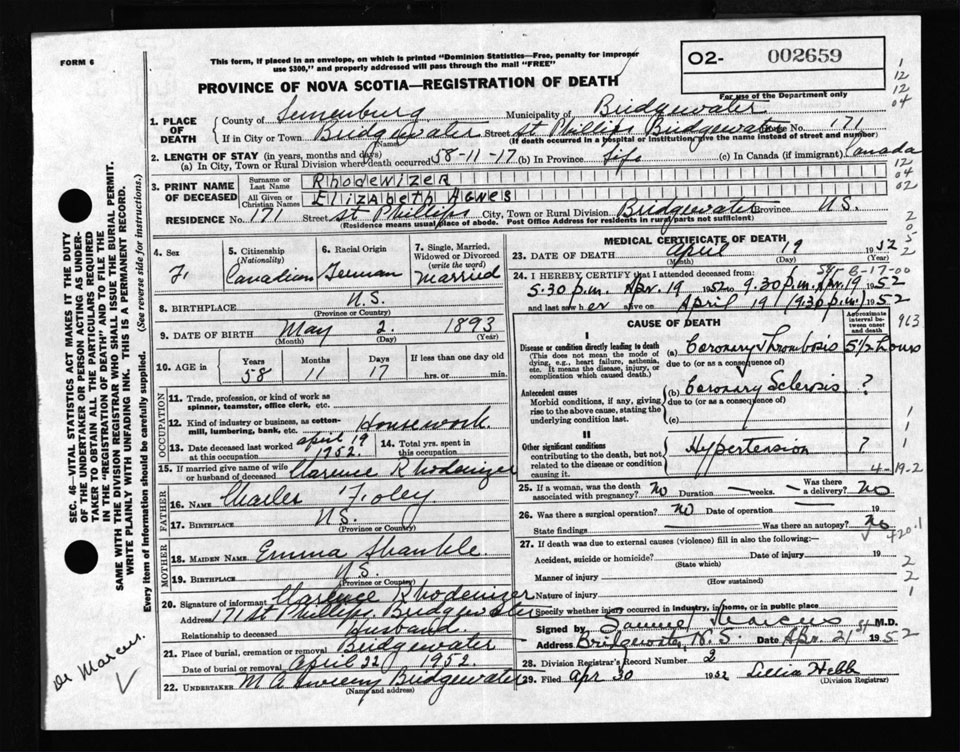 FORM 6
This form, if placed in an envelope, on which is printed "Dominion Statistics—Free, penalty for improper
use $300," and properly addressed will pass through the mail "FREE"
PROVINCE OF NOVA SCOTIA—REGISTRATION OF DEATH
02- 002659
For use of the Department only
1. PLACE OF DEATH
County of Lunenburg Municipality of Bridgewater
If in City or Town Bridgewater Street St Phillips Bridgewater No. 171
(Name) (If death occurred in a hospital or institution, give the name instead of street and number)
2. LENGTH OF STAY (in years, months and days)
(a) In City, Town or Rural Division where death occurred 58-11-17 (b) In Province Life (c) In Canada (if immigrant) Canada
3. PRINT NAME OF DECEASED
Surname or Last Name Rhodewizer
All Given or Christian Names Elizabeth Agnes
RESIDENCE No. 171 Street St Phillips City, Town or Rural Division Bridgewater Province N.S.
(Residence means usual place of abode. Post Office addresses for residents in rural parts not sufficient)
4. Sex F.
5. Citizenship (Nationality) Canadian
6. Racial Origin German
7. Single, Married, Widowed or Divorced (write the word) Married
8. BIRTHPLACE N.S.
(Province or Country)
9. DATE OF BIRTH May 2. 1893
(Month) (Day) (Year)
10. AGE in Years 58 Months 11 Days 17 If less than one day old
hrs. or min.
OCCUPATION
11. Trade, profession, or kind of work as
spinner, teamster, office clerk, etc.
12. Kind of industry or business, as cotton-
mill, lumbering, bank, etc. Housework
13. Date deceased last worked at this occupation April 19 1952.
14. Total yrs. spent in this occupation
15. If married give name of wife
or husband of deceased Clarence Rhodenizer
FATHER
16. NAME Charles Foley
17. BIRTHPLACE N.S.
(Province or Country)
MOTHER
18. MAIDEN NAME Emma Shankle
19. BIRTHPLACE N.S.
(Province or Country)
20. Signature of informant Clarence Rhodenizer
Address 171 St Phillips Bridgewater
Relationship to deceased Husband
21. Place of burial, cremation or removal Bridgewater
Date of burial or removal April 22 1952.
22. UNDERTAKER M A Sweeny Bridgewater
(Name and address)
MEDICAL CERTIFICATE OF DEATH
23. DATE OF DEATH April 19 1952
(Month) (Day)
58-6-17-00
24. I HEREBY CERTIFY that I attended deceased from
5.30 p.m. Apr. 19 1952 to 9.30 p.m. Apr. 19 1952
and last saw her alive on April 19 (9.30 p.m.) 1952
CAUSE OF DEATH
Approximate interval between onset and death
963
I
Disease or condition directly leading to death
(This does not mean the mode of
dying, e.g., heart failure, asthenia,
etc. It means the disease, injury, or
complication which caused death.)
(a) Coronary Thrombosis 5 1/2 hours
due to (or as a consequence of)
Antecedent causes
Morbid conditions, if any, giving
rise to the above cause, stating the
underlying condition last.
(b) Coronary Sclerosis ?
due to (or as a consequence of)
(c)
II
Other significant conditions
contributing to the death, but not
related to the disease or condition
causing it.
Hypertension ?
4-19-2
25. If a woman, was the death associated with pregnancy? No Duration — weeks. — Was there a delivery? No
26. Was there a surgical operation? No Date of operation — 19
State findings — Was there an autopsy? No
420.1
27. If death was due to external causes (violence) fill in also the following:—
Accident, suicide or homicide? Date of injury 19
(State which)
Manner of injury
(How sustained)
Nature of injury
Specify whether injury occurred in industry, in home, or in public place
Signed by Samuel Marcus M.D.
Address Bridgewater, N.S. Date Apr. 21st 1952
28. Division Registrar's Record Number 2
29. Filed Apr 30 1952 Lillia Hebb
(Division Registrar)
SEC. 46—VITAL STATISTICS ACT MAKES IT THE DUTY
OF THE UNDERTAKER OR PERSON ACTING AS UNDER-
TAKER TO OBTAIN ALL THE PARTICULARS REQUIRED
IN THE "REGISTRATION OF DEATH" AND TO FILE THE
SAME WITH THE DIVISION REGISTRAR WHO SHALL ISSUE THE BURIAL PERMIT.
WRITE PLAINLY WITH UNFADING INK. THIS IS A PERMANENT RECORD.
Every item of information should be carefully supplied. (See reverse side for instructions.)
Dr Marcus.
1
12
12
04
12
04
02
2
0
5
2
1
1
1
2
2
1